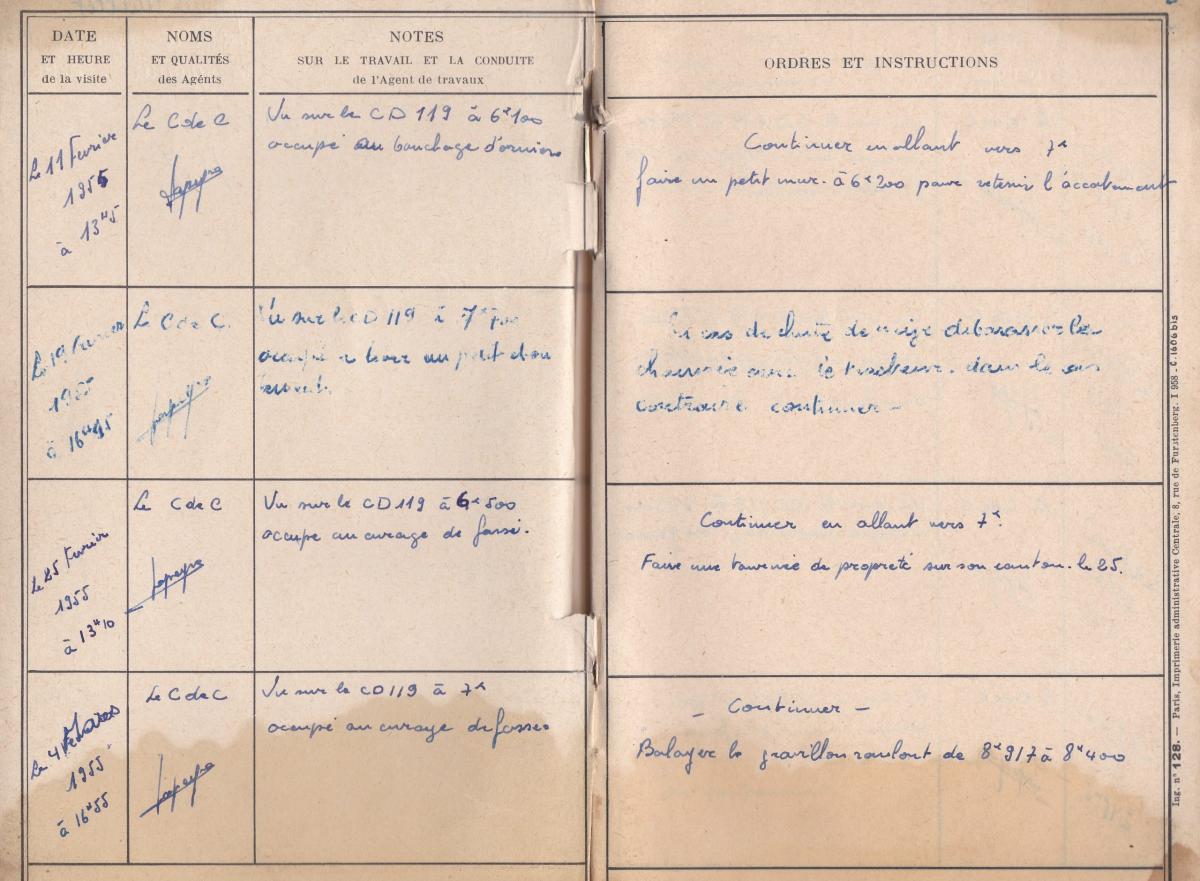 DATE
ET HEURE
de la visite
NOMS
ET QUALITÉS
des Agents
NOTES
SUR LE TRAVAIL ET LA CONDUITE
de l'Agent de travaux
ORDRES ET INSTRUCTIONS
Le 11 Fevrier
1955
à 13H45
Le C de C
Vu sur le CD 119 à 6K100
occupé au bouchage d'ornieres
Continuer en allant vers 7K
faire un petit mur. à 6K200 pour retenir l'accotement
Le 19 Fevrier
1955
à 16H45
Le C de C.
Vu sur le CD 119 à 7K700
occupé a un petit
En cas de chute de neige débarasser la
chaussée avec le dans le cas
contraire continuer -
Le 25 Fevrier
1955
à 13H10
Le C de C
Vu sur le CD 119 à 6K500
occupé au curage de fossé.
Continuer en allant vers 7K.
Faire une tournée de propreté sur son canton. le 25.
Le 4 Mars
1955
à 16H55
Le C de C
Vu sur le CD 119 à 7K
occupé au curage de fosses
- Continuer -
Balayer le gravillon roulant de 8K917 à 8K400
Ing. n° 128. — Paris, Imprimerie administrative Centrale, 8, rue de Furstenberg. I 958 - C.1606 bis